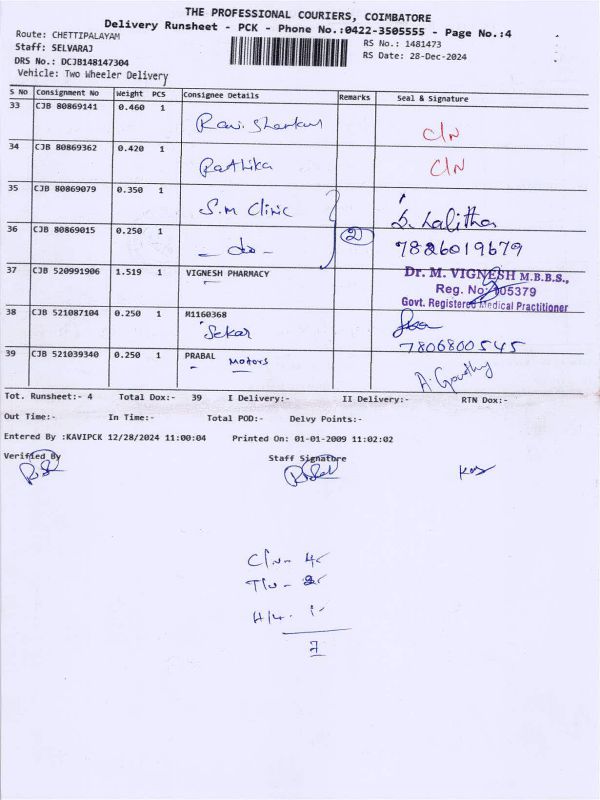 THE PROFESSIONAL COURIERS, COIMBATORE
Delivery Runsheet - PCK - Phone No.:0422-3505555 - Page No.:4
Route: CHETTIPALAYAM
RS No.: 1481473
Staff: SELVARAJ
RS Date: 28-Dec-2024
DRS No.: DCJB148147304
Vehicle: Two Wheeler Delivery
S No Consignment No Weight PCS Consignee Details Remarks Seal & Signature
33 CJB 80869141 0.460 1 Ravi Shankar C/N
34 CJB 80869362 0.420 1 Rathika C/N
35 CJB 80869079 0.350 1 S.M Clinic S. Lalitha
36 CJB 80869015 0.250 1 - do - 2 7826019679
37 CJB 520991906 1.519 1 VIGNESH PHARMACY Dr. M. VIGNESH M.B.B.S.,
Reg. No: 105379
Govt. Registered Medical Practitioner
38 CJB 521087104 0.250 1 M1160368
Sekar 7806800545
39 CJB 521039340 0.250 1 PRABAL Motors A. Gowthy
Tot. Runsheet:- 4 Total Dox:- 39 I Delivery:- II Delivery:- RTN Dox:-
Out Time:- In Time:- Total POD:- Delvy Points:-
Entered By :KAVIPCK 12/28/2024 11:00:04 Printed On: 01-01-2009 11:02:02
Verified By Staff Signature
C/N - 4
T/N - 2
H/L - 1
7